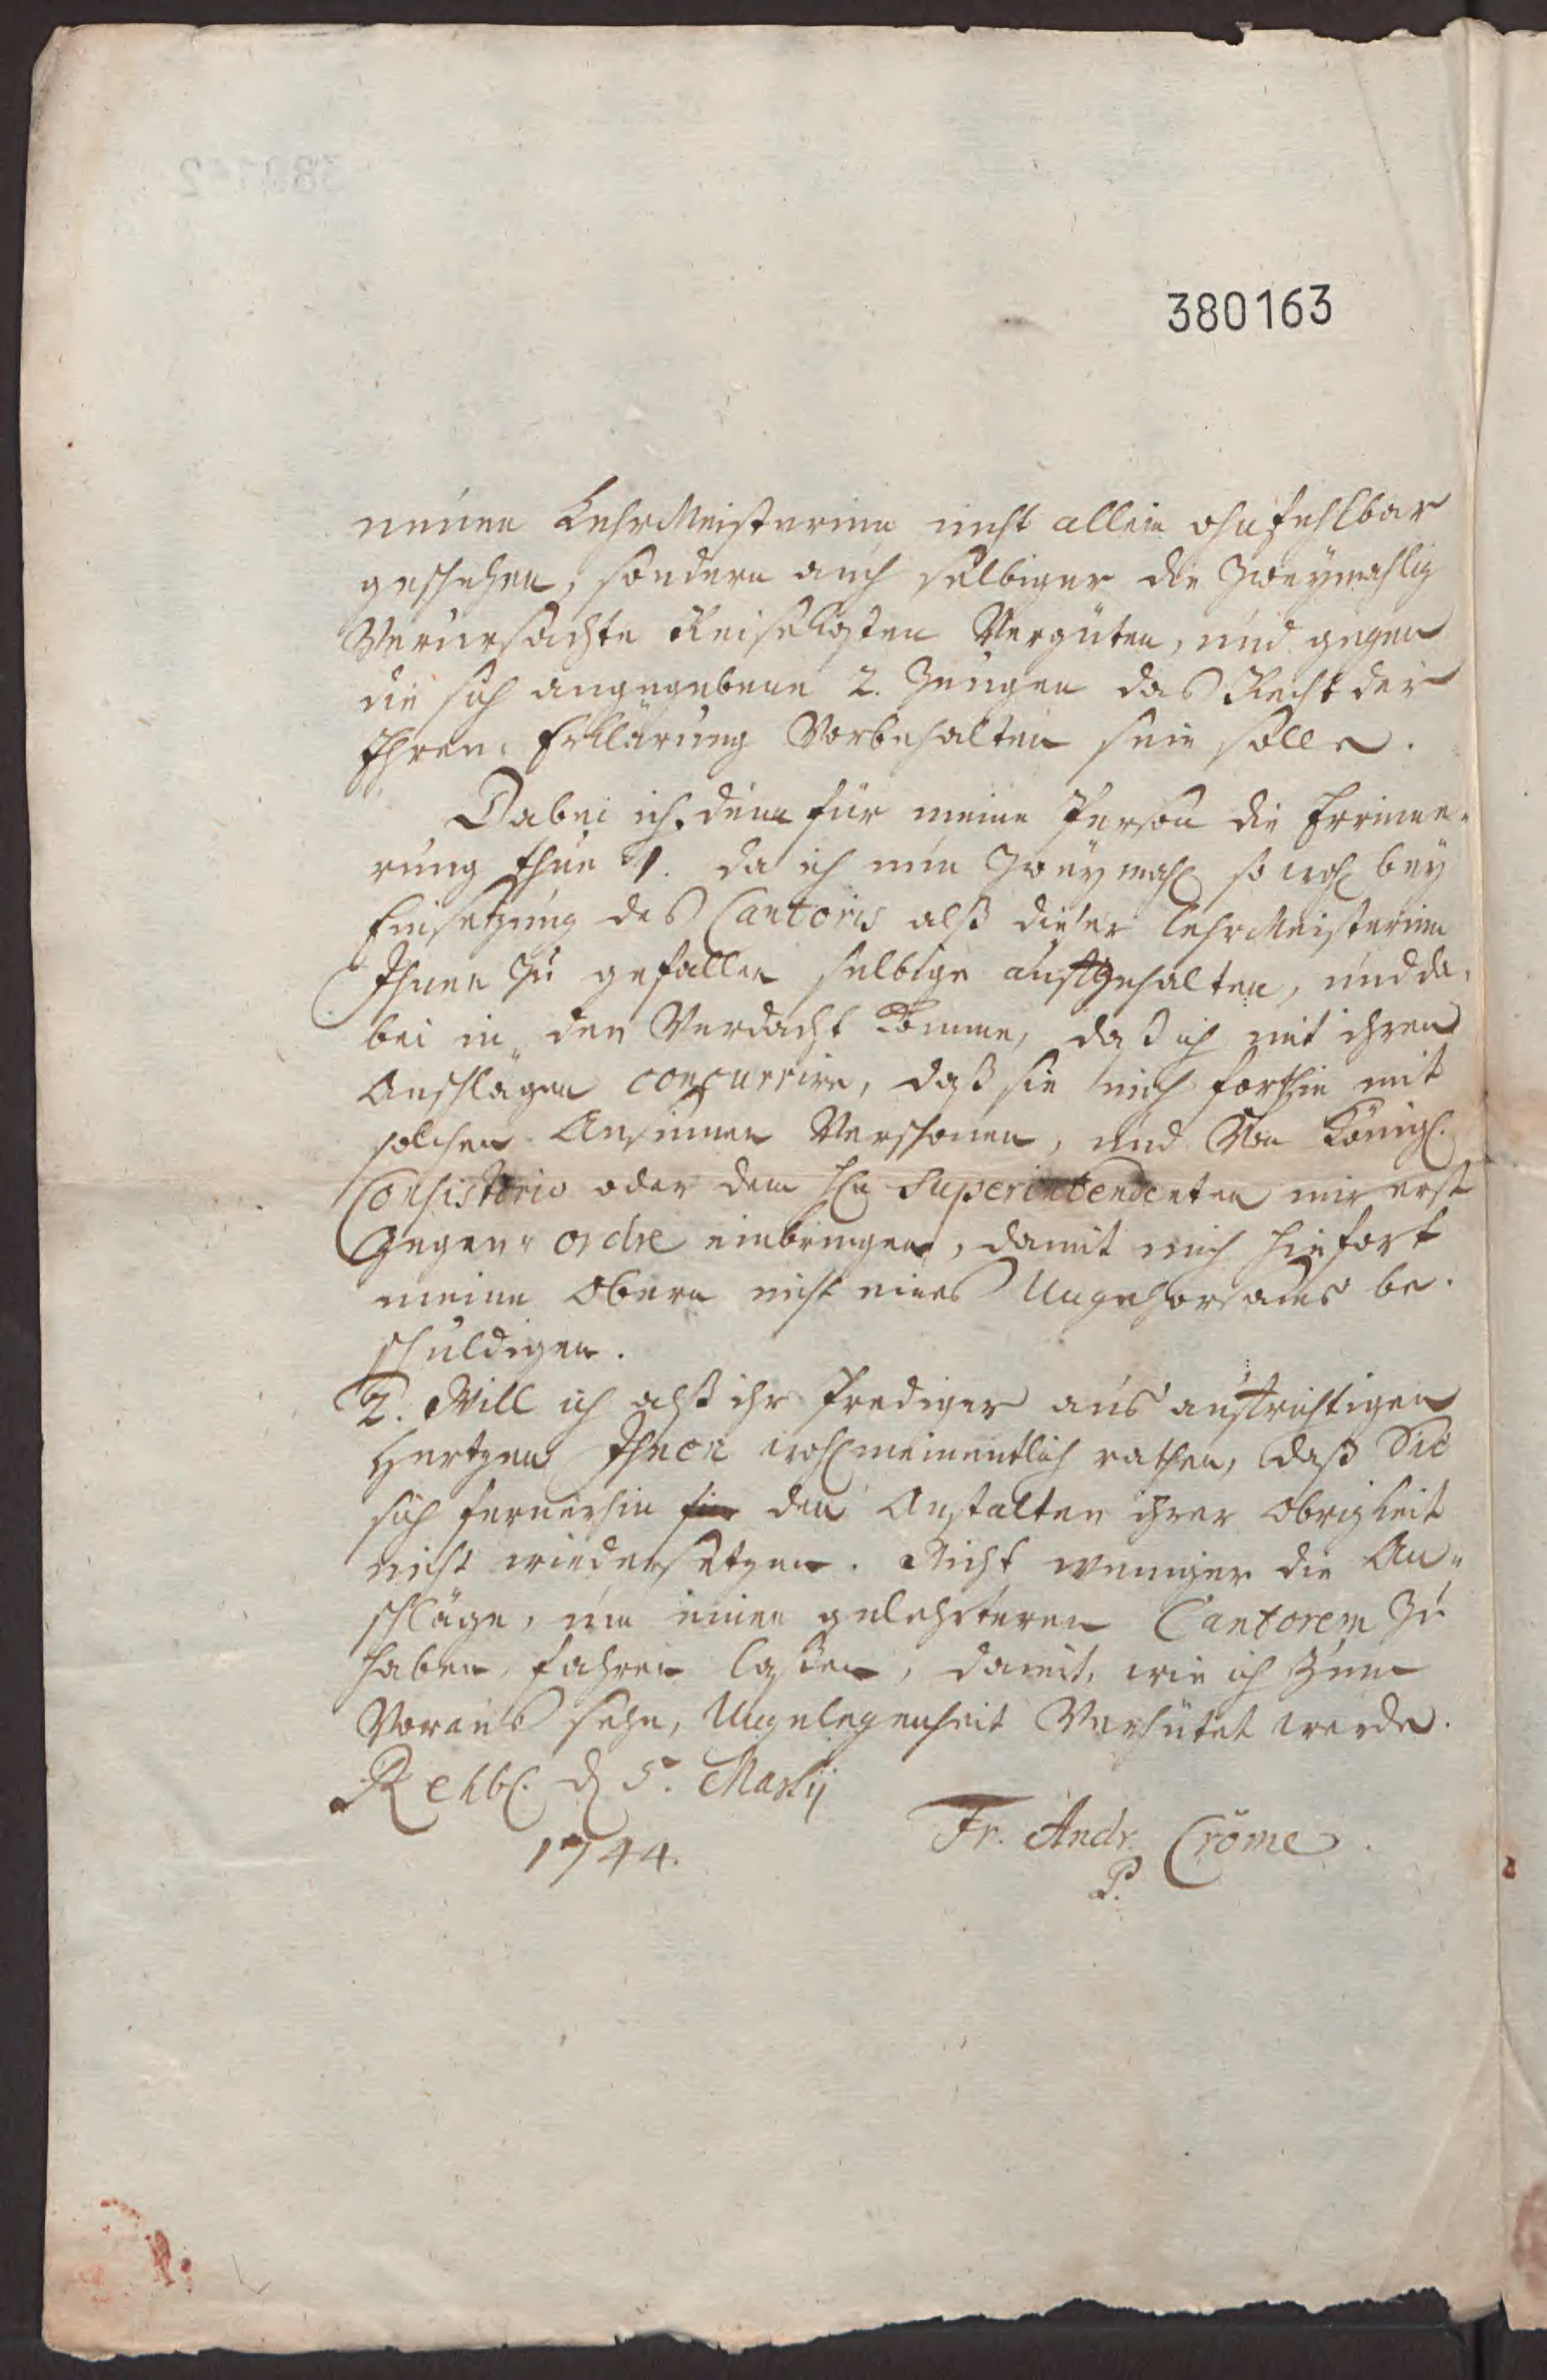 380163
neuen LehrMeisterinn nicht allein ohnfehlbar
geschehen, sondern auch selbiger die Zweymahlig
Verursachte Reisekosten Vergüten, und gegen
die sich angegebene 2. Zeugen das Recht der
Ehren-Erklärung Vorbehalten sein solle.
Dabei ich denn für meine Person die Erinne-
rung thue 1. da ich nun Zweymahl so wohl bey
Einsetzung des Cantoris alß dieser LehrMeisterinn
Ihnen Zu gefallen selbige aufgehalten, und da-
bei in den Verdacht komme, daß ich mit ihren
Anschlägen concurrire, daß sie mich forthin mit
solchen Ansinnen Verschonen, und Von Königl.
Consistorio oder dem Hn Superintendenten mir erst
Gegen-ordre einbringen, damit mich hinfort
meine Obern nicht eines Ungehorsams be-
schuldigen.
2. Will ich alß ihr Prediger aus aufrichtigen
Hertzen Ihnen wohlmeinentlich rathen, daß Sie
sich fernerhin den Anstalten ihrer Obrigkeit
nicht wiedersetzen. Nicht weniger die An-
schläge, um einen gelehrteren Cantorem Zu
haben, fahren lassen, damit, wie ich Zum
Voraus sehe, Ungelegenheit Verhütet werde.
Rehb. d 5. Martij
1744.
Fr. Andr. Cröme.
P.